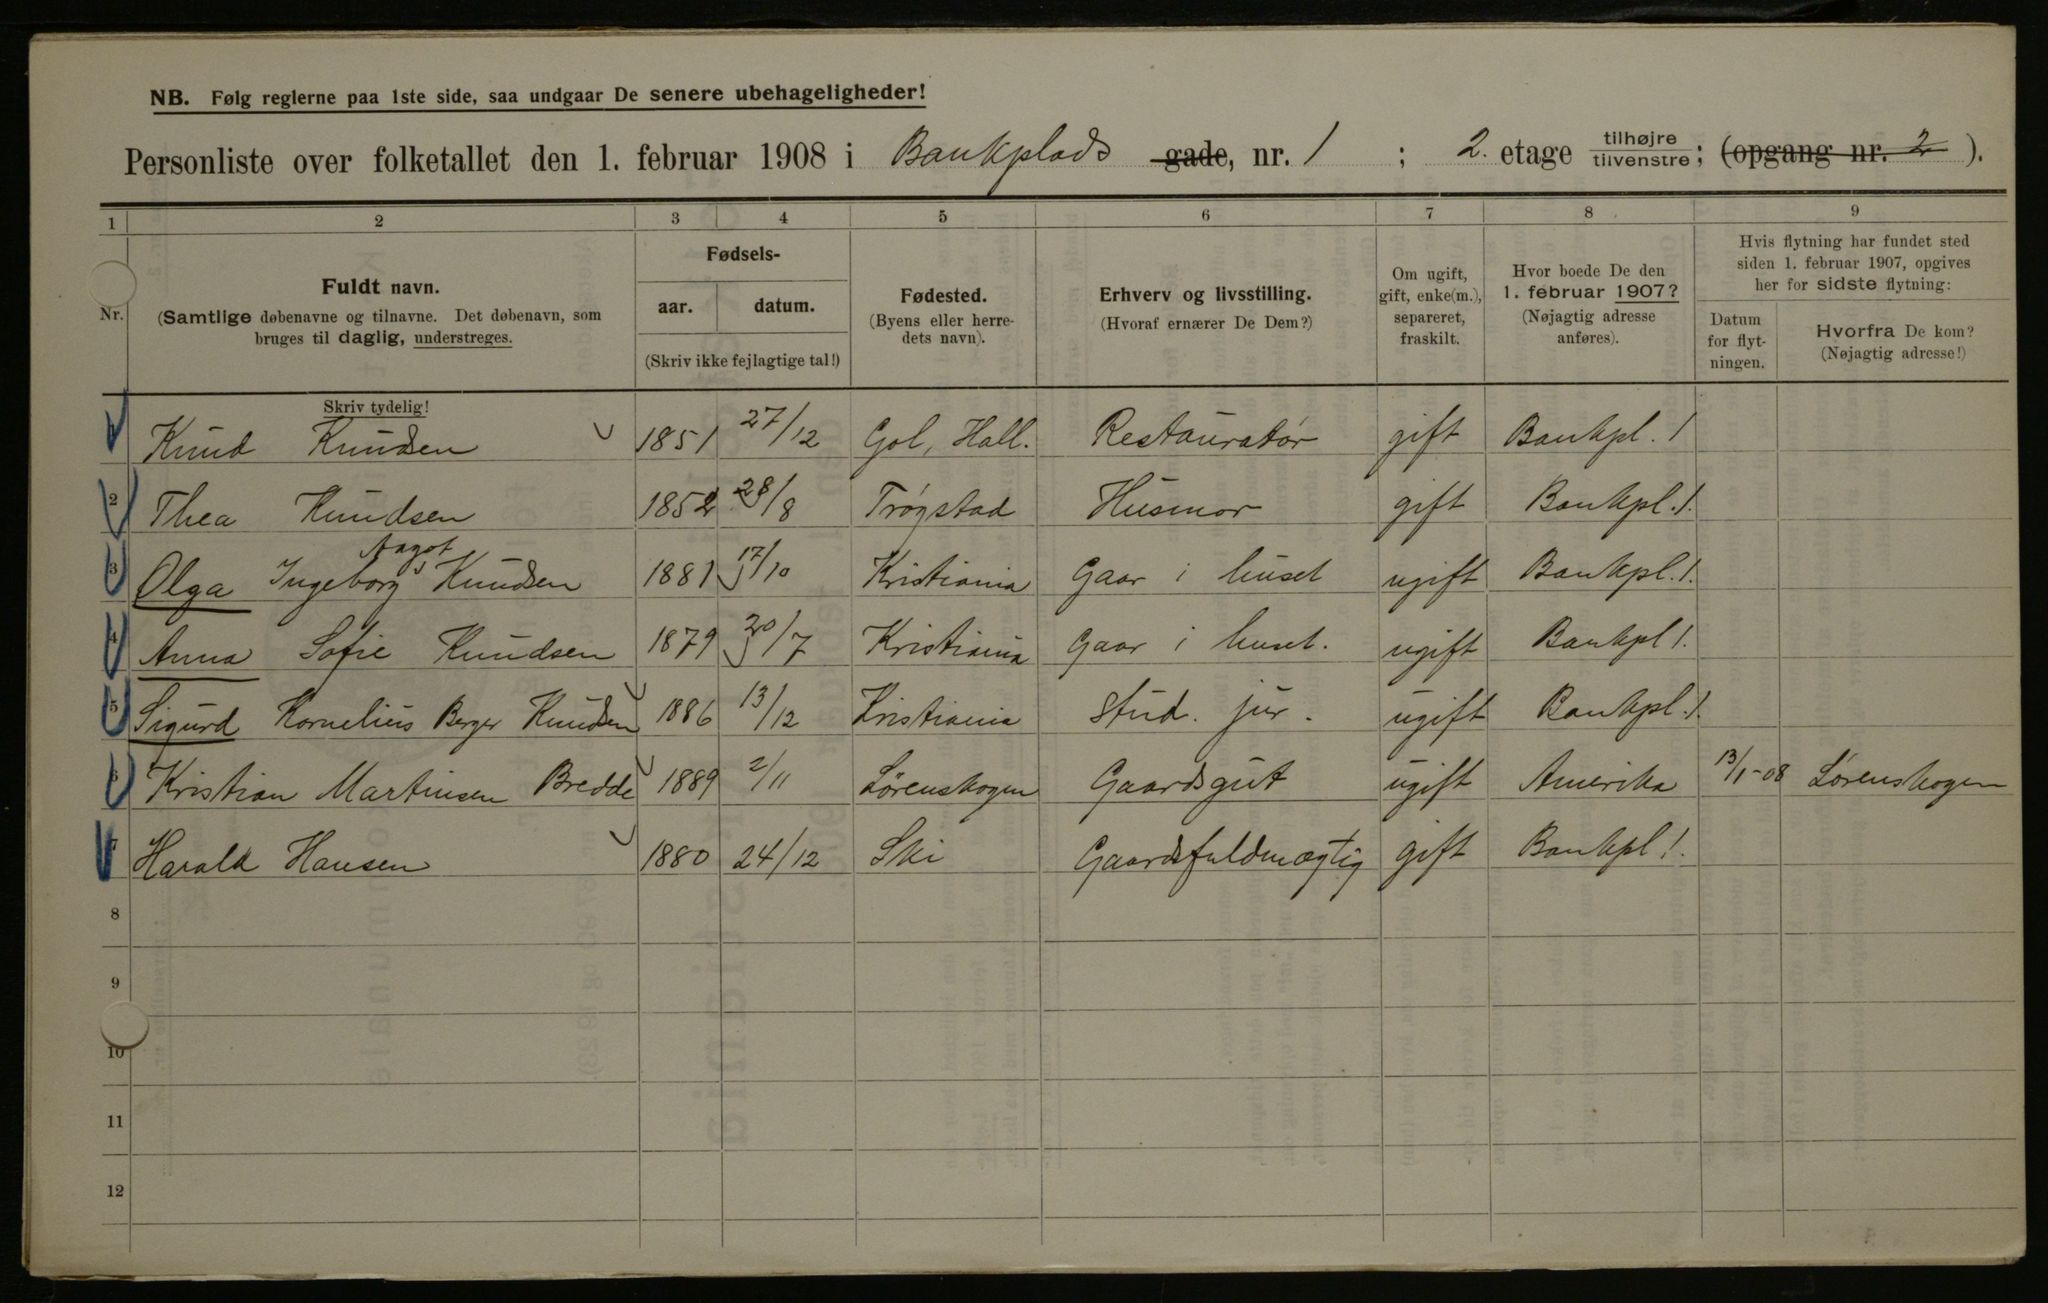 NB. Følg reglerne paa 1ste side, saa undgaar De senere ubehageligheder!
Personliste over folketallet den 1. februar 1908 i Bankplads gade, nr. 1 ; 2. etage tilhøjre tilvenstre; (opgang nr. 2 ).
1 2 3 4 5 6 7 8 9
Nr.
Fuldt navn.
(Samtlige døbenavne og tilnavne. Det døbenavn, som
bruges til daglig, understreges.
Skriv tydelig!
Fødsels-
aar. datum.
(Skriv ikke fejlagtige tal!)
Fødested.
(Byens eller herre-
dets navn).
Erhverv og livsstilling.
(Hvoraf ernærer De Dem?)
Om ugift,
gift, enke(m.),
separeret,
fraskilt.
Hvor boede De den
1. februar 1907?
(Nøjagtig adresse
anføres).
Hvis flytning har fundet sted
siden 1. februar 1907, opgives
her for sidste flytning:
Datum
for flyt-
ningen.
Hvorfra De kom?
(Nøjagtig adresse!)
1 Knud Knudsen 1851 27/12 Gol, Hall. Restauratør gift Bankpl. 1
2 Thea Knudsen 1852 28/8 Trøgstad Husmor gift Bankpl. 1.
3 Olga Ingeborg Aagot Knudsen 1881 17/10 Kristiania Gaar i huset ugift Bankpl. 1.
4 Anna Sofie Knudsen 1879 20/7 Kristiania Gaar i huset. ugift Bankpl 1.
5 Sigurd Kornelius Berger Knudsen 1886 13/12 Kristiania stud. jur. ugift Bankpl. 1.
6 Kristian Martinsen Bredde 1889 2/11 Lørenskogen Gaardsgut ugift Amerika 13/1-08 Lørenskogen
7 Harald Hansen 1880 24/12 Ski Gaardsfuldmægtig gift Bankpl 1.
8
9
10
11
12